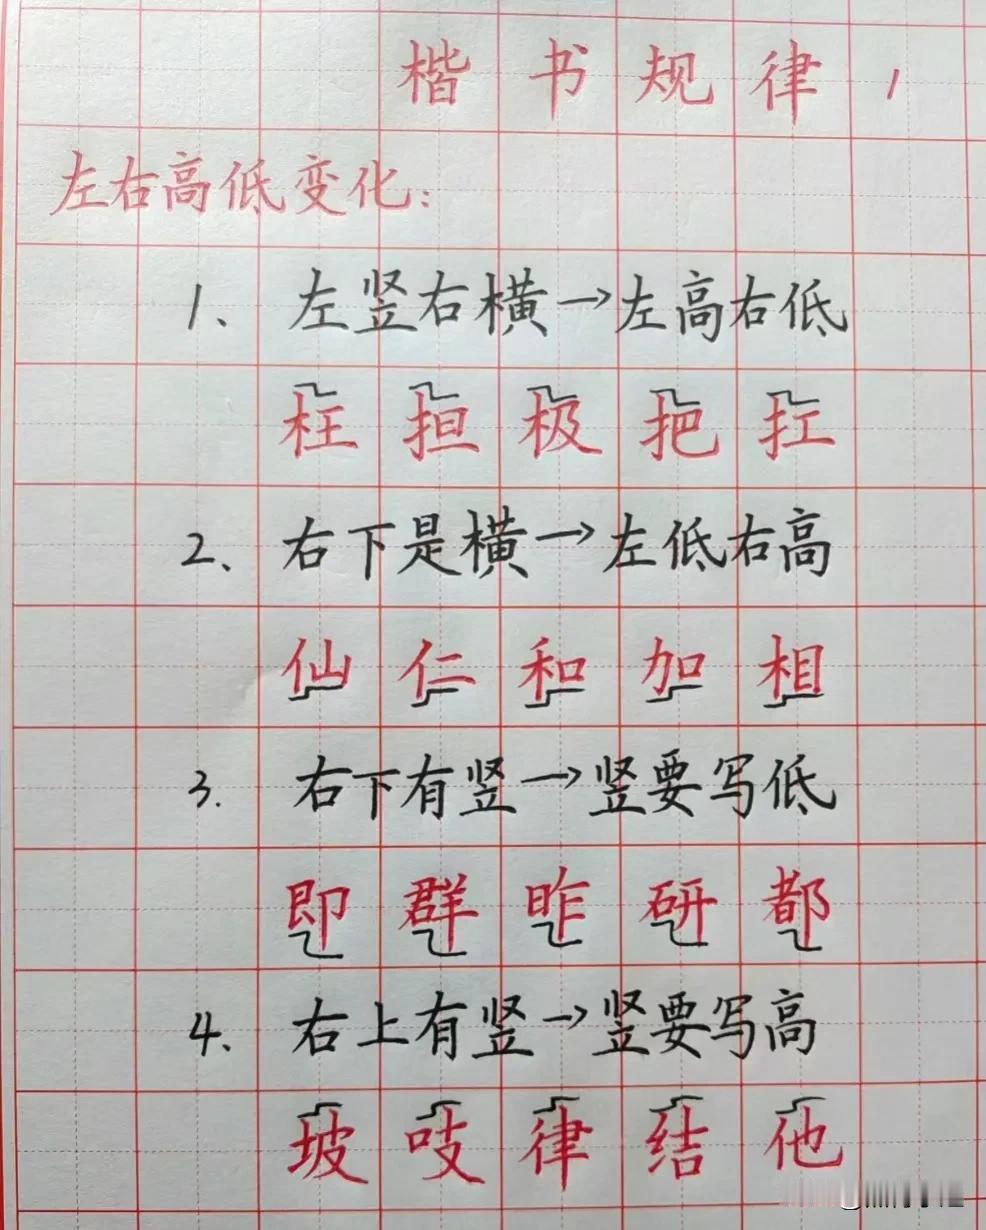 楷书规律1
左右高低变化:
1、左竖右横→左高右低
柱担极把扛
2、右下是横→左低右高
仙仁和加相
3.右下有竖→竖要写低
即群昨研都
4、右上有竖→竖要写高
坡吱律结他